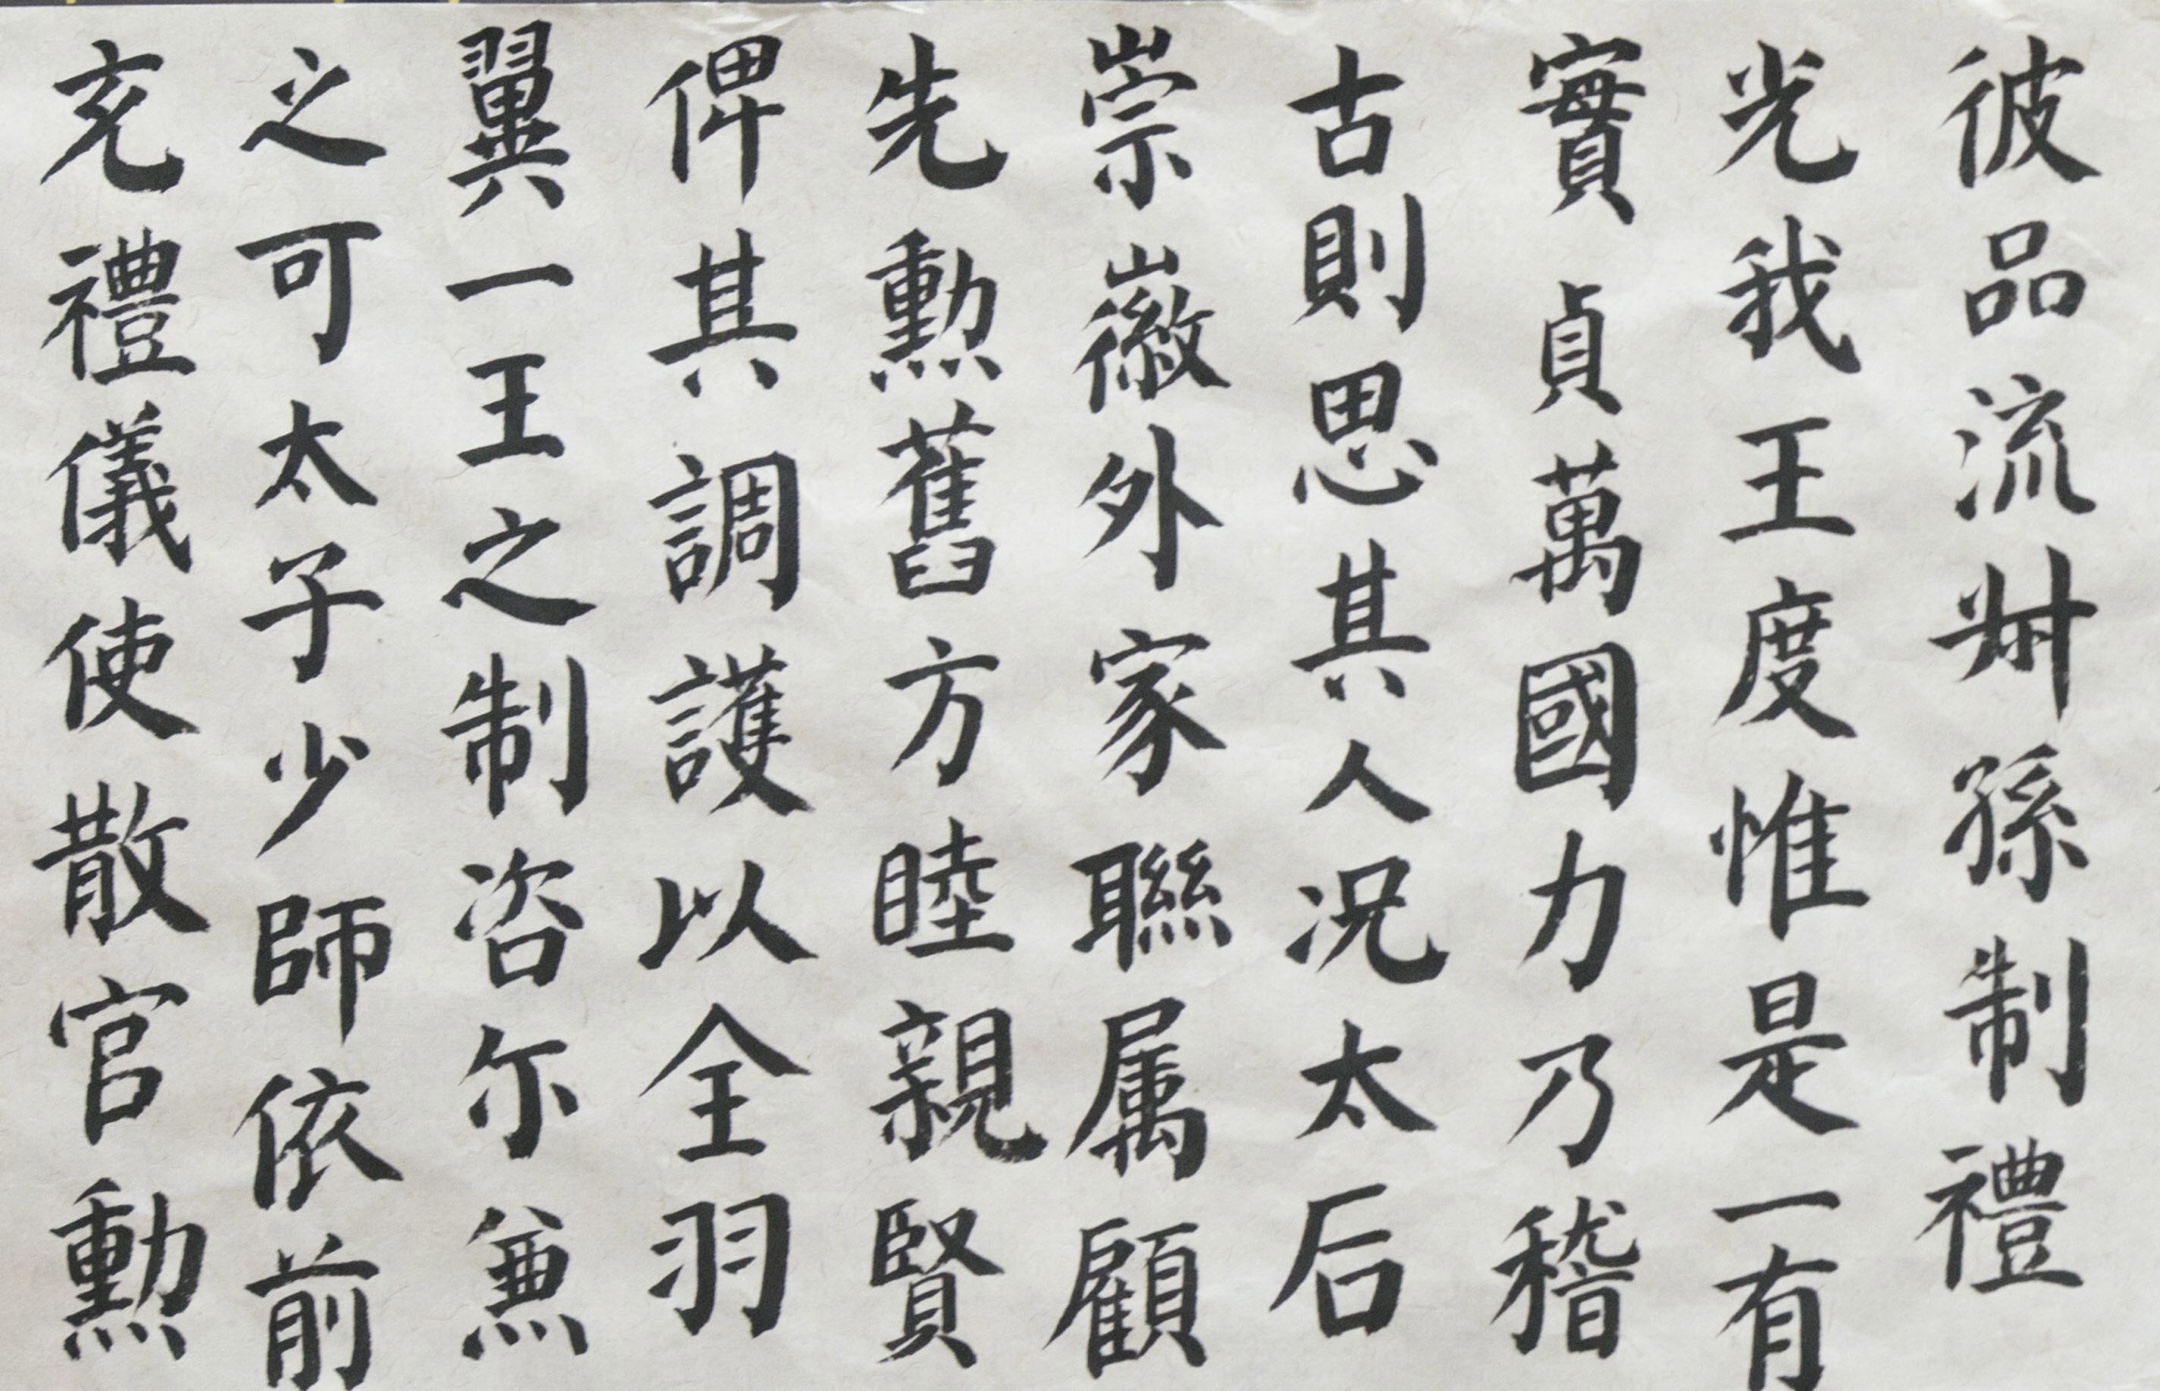 彼品流姌孫制禮
光我王度惟是一有
實貞萬國力乃稽
古則思其人况太后
崇徽外家聯属顧
先勲舊方睦親賢
俾其調護以全羽
翼一王之制咨尓兼
之可太子少師依前
充禮儀使散官勲